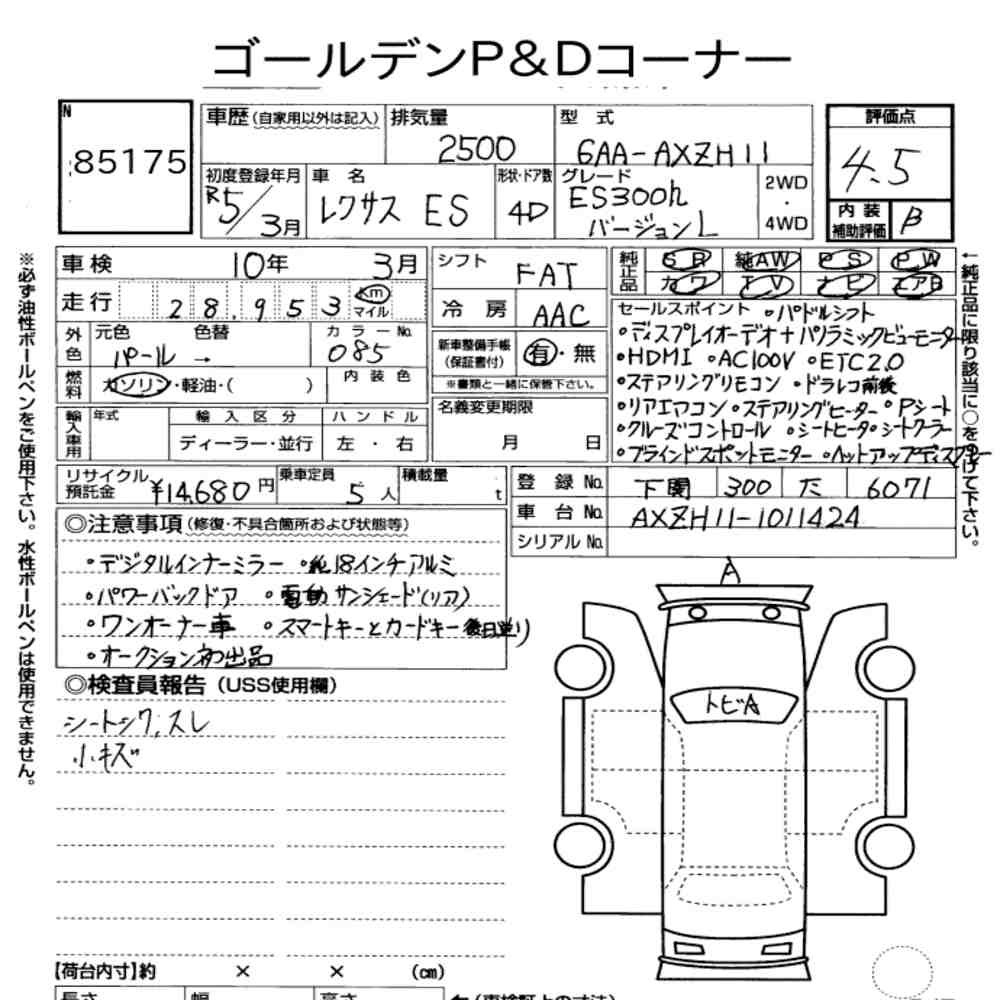 ゴールデンP&Dコーナー
N
85175
車歴 (自家用以外は記入)
排気量
2500
型 式
6AA-AXZH11
評価点
4.5
初度登録年月
R5/3月
車 名
レクサス ES
形状・ドア数
4D
グレード
ES300h
バージョンL
2WD
・
4WD
内装
補助評価
B
車検 10年 3月
走行 28,953 km
マイル
シフト FAT
冷房 AAC
純正品
SR 純AW PS PW
カワ TV ナビ エアB
外色
元色 色替 カラーNo.
パール → 085
燃料
ガソリン・軽油・( )
内装色
新車整備手帳
(保証書付)
有・無
※書類と一緒に保管下さい。
セールスポイント ・パドルシフト
・ディスプレイオーディオ+パノラミックビューモニター
・HDMI ・AC100V ・ETC2.0
・ステアリングリモコン ・ドラレコ前後
・リアエアコン ・ステアリングヒーター ・Pシート
・クルーズコントロール ・シートヒータ ・シートクーラー
・ブラインドスポットモニター ・ヘットアップディスプレー
輸入車用
年式
輸入区分
ハンドル
ディーラー・並行
左・右
名義変更期限
月 日
リサイクル
預託金
¥14,680円
乗車定員
5人
積載量
t
登録No. 下関 300 た 6071
車台No. AXZH11-1011424
シリアルNo.
◎注意事項(修復・不具合箇所および状態等)
・デジタルインナーミラー ・純18インチアルミ
・パワーバックドア ・電動サンシェード(リア)
・ワンオーナー車 ・スマートキーとカードキー後日送り)
・オークション初出品
◎検査員報告(USS使用欄)
シートシワ,スレ
小キズ
A
トビA
【荷台内寸】約 × × (cm)
長さ 幅 高さ
※必ず油性ボールペンをご使用下さい。水性ボールペンは使用できません。
←純正品に限り該当に○をつけて下さい。